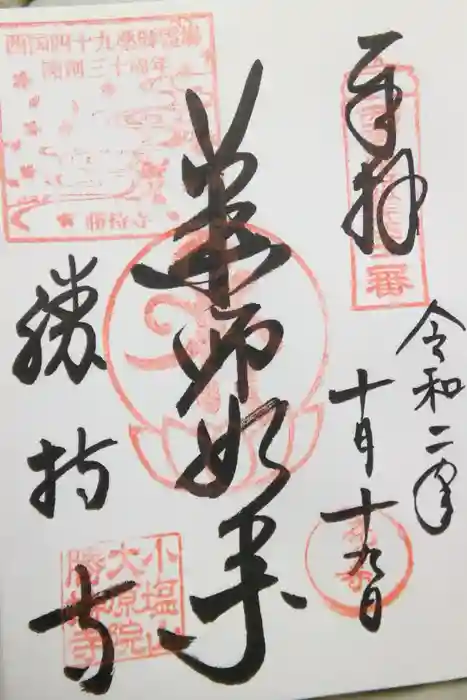 奉拝
令和二年
十月十九日
薬師如来
勝持寺
西国四十九薬師霊場
開創三十周年
勝持寺
番
小塩山
大原院
勝持寺